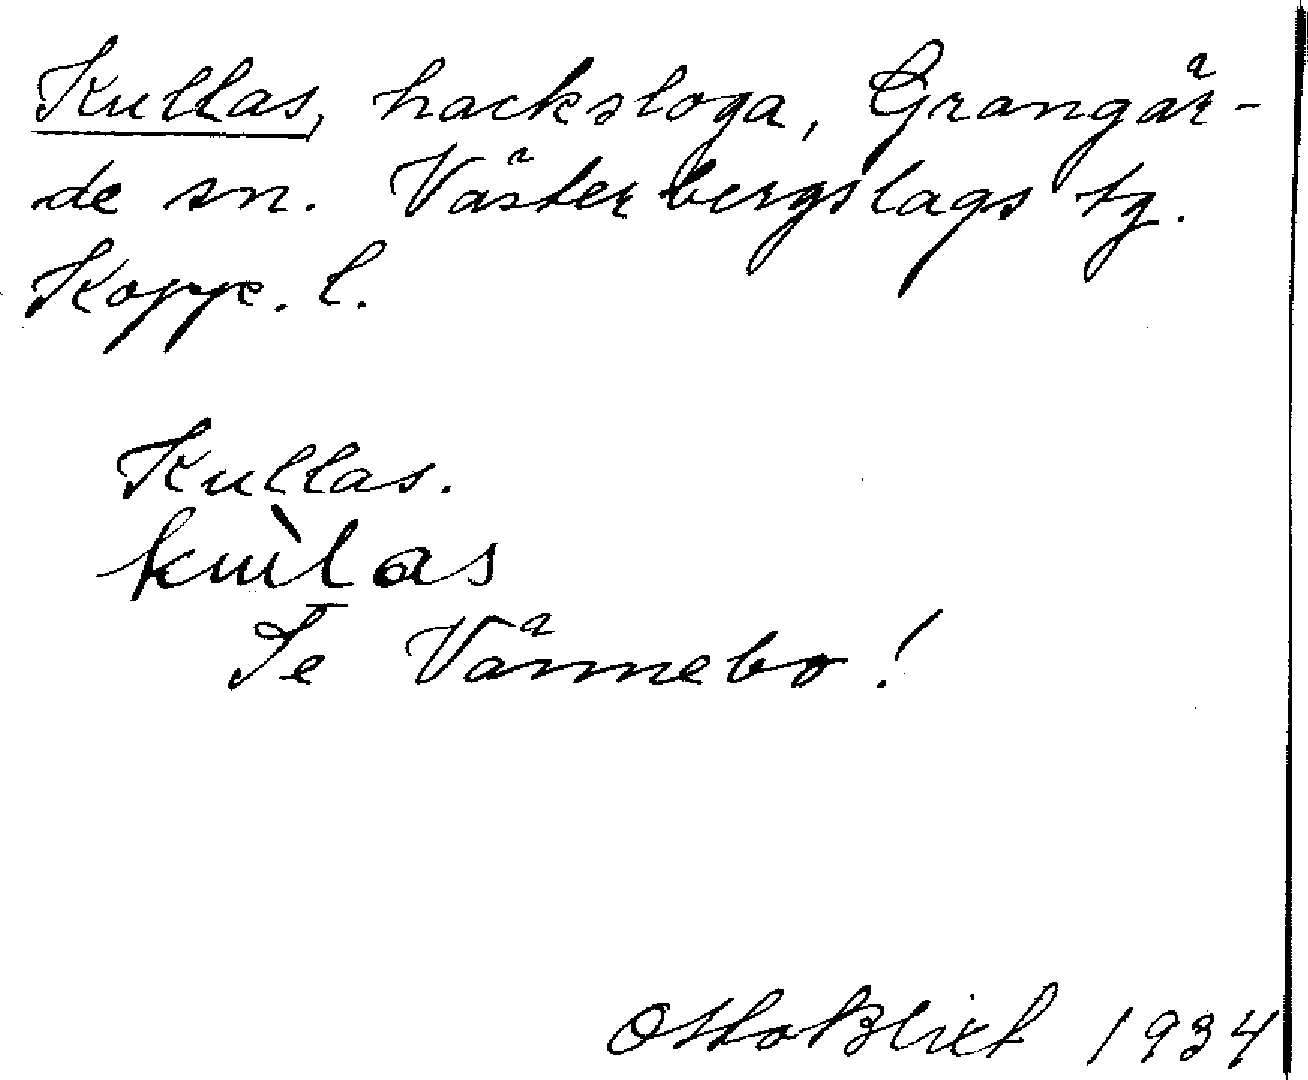 Kullas, hacksloga, Grangär-
de sn. Västerbergslags tg.
Kopp. l.
Kullas.
kùlas
Se Vännebo!
Otto Blixt 1934